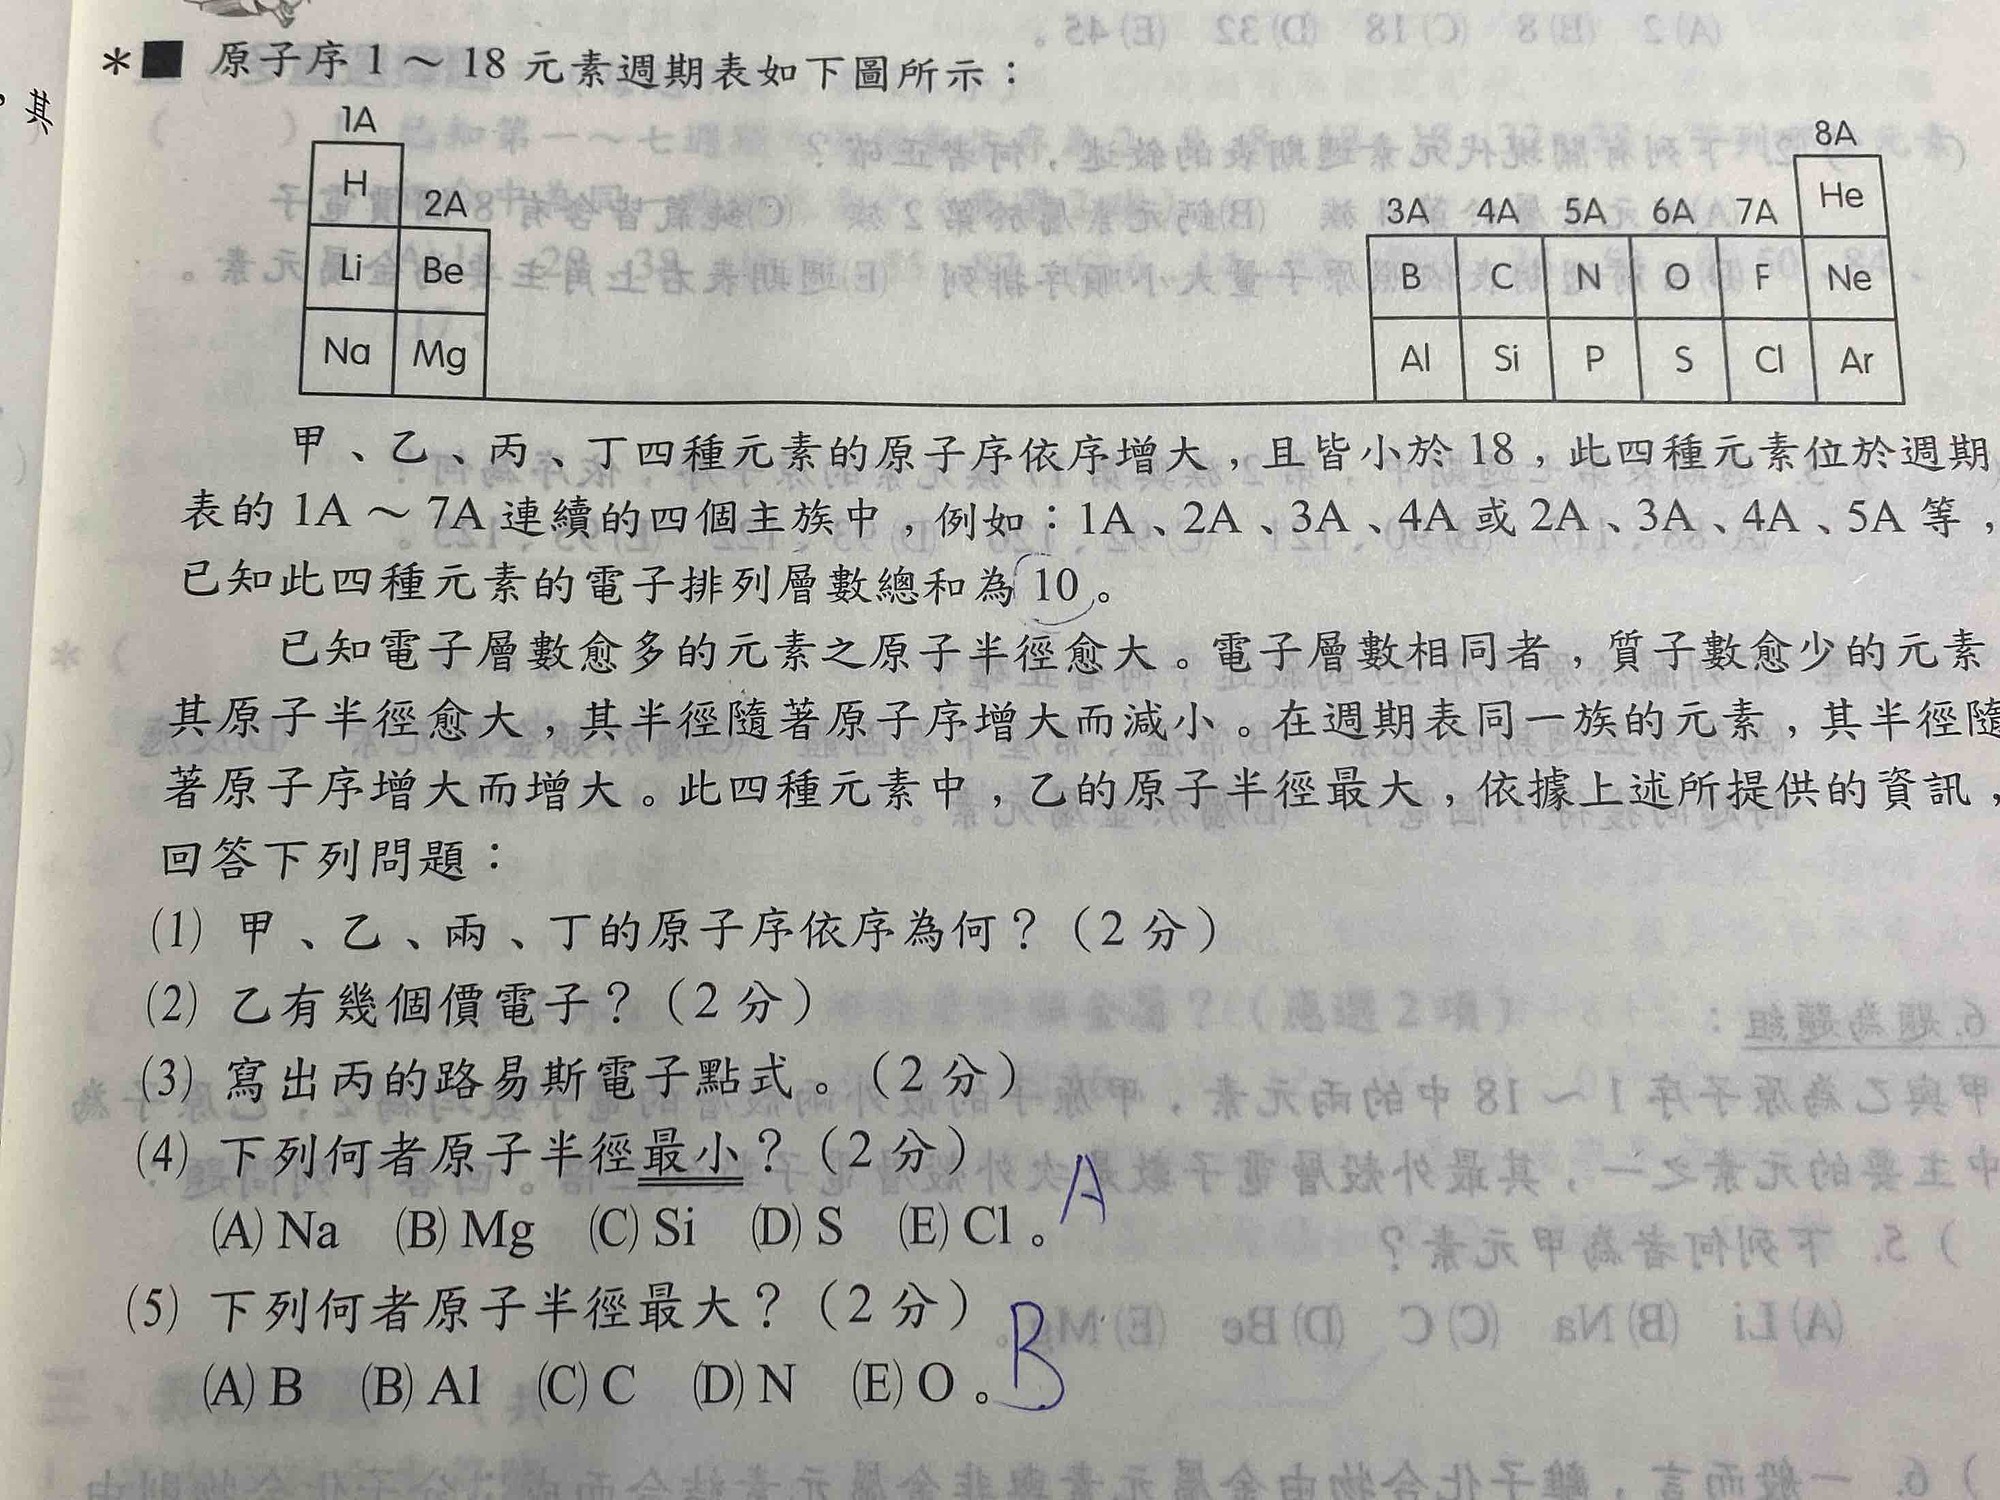 ，其
*■ 原子序 1 ～ 18 元素週期表如下圖所示：
1A 8A
H 2A 3A 4A 5A 6A 7A He
Li Be B C N O F Ne
Na Mg Al Si P S Cl Ar
甲、乙、丙、丁四種元素的原子序依序增大，且皆小於 18，此四種元素位於週期
表的 1A ～ 7A 連續的四個主族中，例如：1A、2A、3A、4A 或 2A、3A、4A、5A 等，
已知此四種元素的電子排列層數總和為 10。
已知電子層數愈多的元素之原子半徑愈大。電子層數相同者，質子數愈少的元素
其原子半徑愈大，其半徑隨著原子序增大而減小。在週期表同一族的元素，其半徑隨
著原子序增大而增大。此四種元素中，乙的原子半徑最大，依據上述所提供的資訊，
回答下列問題：
(1) 甲、乙、兩、丁的原子序依序為何？（2 分）
(2) 乙有幾個價電子？（2 分）
(3) 寫出丙的路易斯電子點式。（2 分）
(4) 下列何者原子半徑最小？（2 分）
(A) Na (B) Mg (C) Si (D) S (E) Cl。 A
(5) 下列何者原子半徑最大？（2 分）
(A) B (B) Al (C) C (D) N (E) O。 B